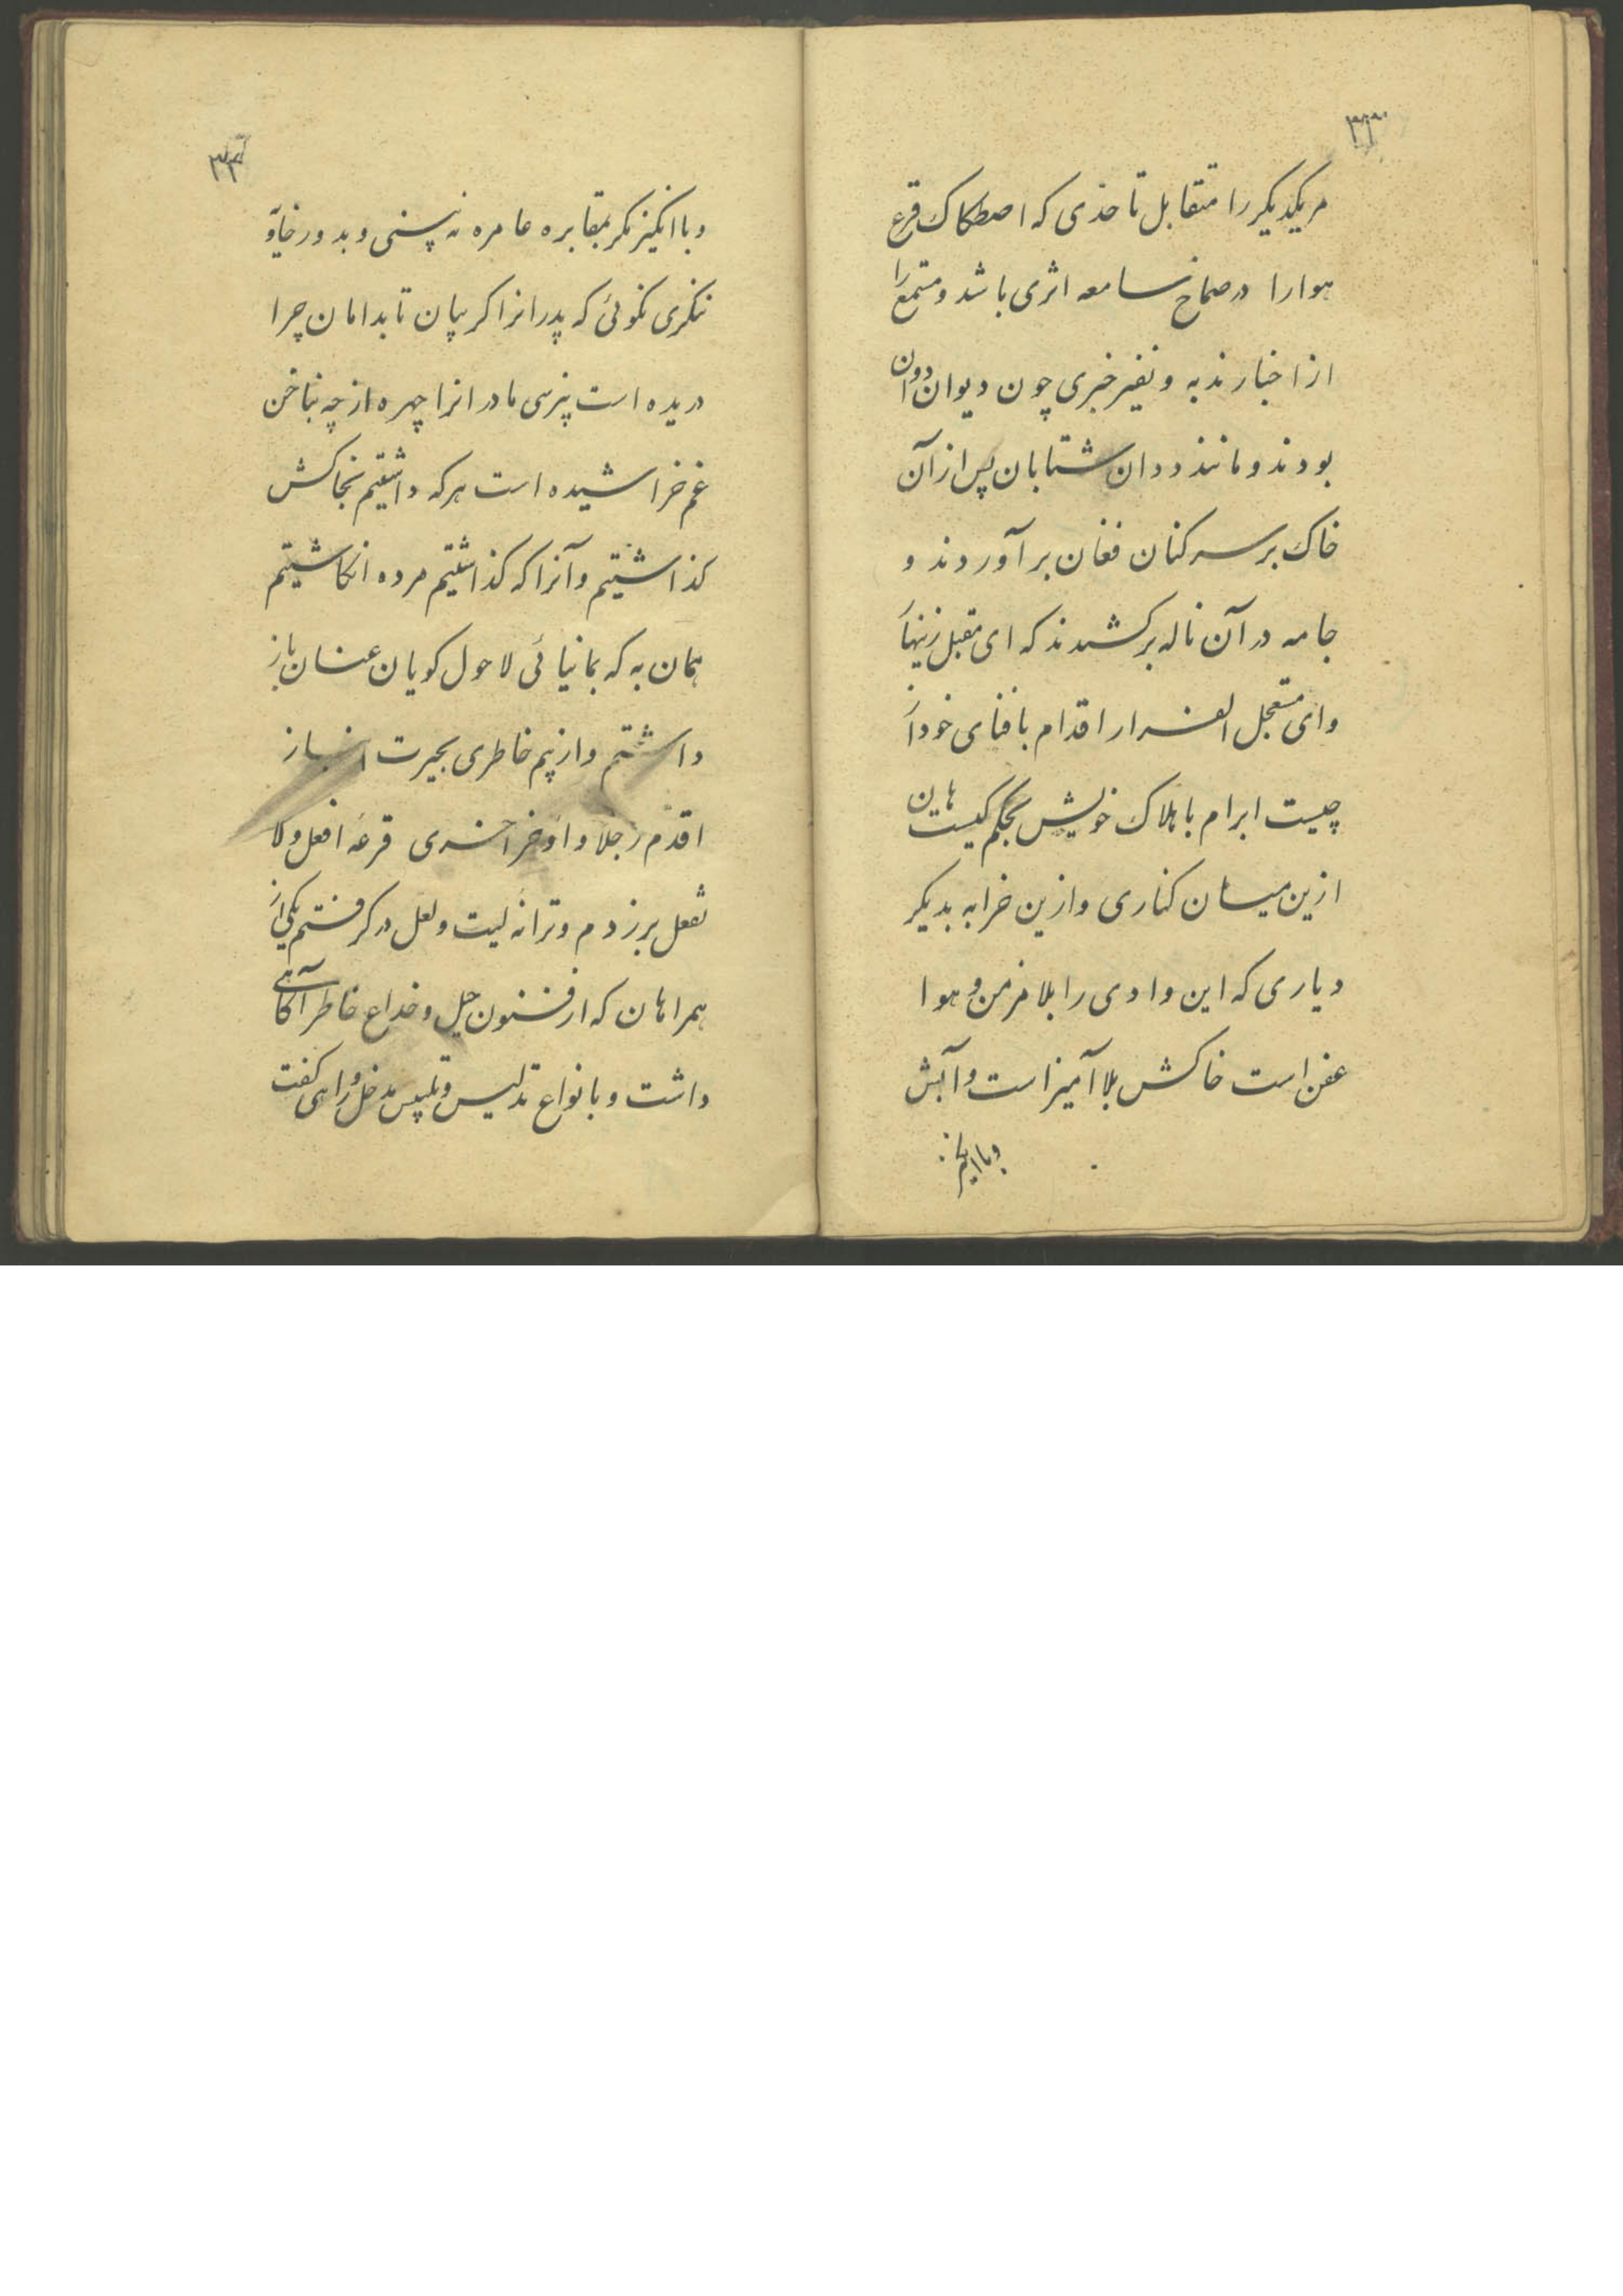 ۳۳
مر یکدیکر را متقابل تا حدی که اصطکاک قرع
هوا را در صماخ سامعه اثری باشد و مستمع را
از اخبار ندبه و نفیر خبری چون دیوان دوان
بودند و مانند ددان شتابان پس از آن
خاک بر سر کنان فغان بر آوردند و
جامه در آن ناله بر کشیدند که ای مقبل زینهار
وای مستعجل الفرار اقدام بافنای خود از
چیست ابرام باهلاک خویش بحکم کیست هان
ازین میان کناری وازین خرابه بدیکر
دیاری که این وادی را بلا مزمن و هوا
عفن است خاکش بلا آمیز است و آبش
وبا انکیز
۳۴
وبا انکیز مکر بمقابره عامره نه بینی و بدور خاویه
ننکری نکوئی که پدرانرا کریبان تا بدامان چرا
دریده است نپرسی مادرانرا چهره از چه بناخن
غم خراشیده است هر که داشتیم بخاکش
کذاشتیم و آنرا که کذاشتیم مرده انکاشتیم
همان به که بمانیائی لاحول کویان عنان باز
داشتم و از بیم خاطری بحیرت انباز
اقدّم رجلا و اوخر اخری قرعهٔ افعل ولا
تفعل بر زدم و ترانهٔ لیت و لعل در کرفتم یکی از
همراهان که از فنون حیل و خداع خاطر آکاهی
داشت و بانواع تدلیس و تلبیس مدخل و راهی کفت